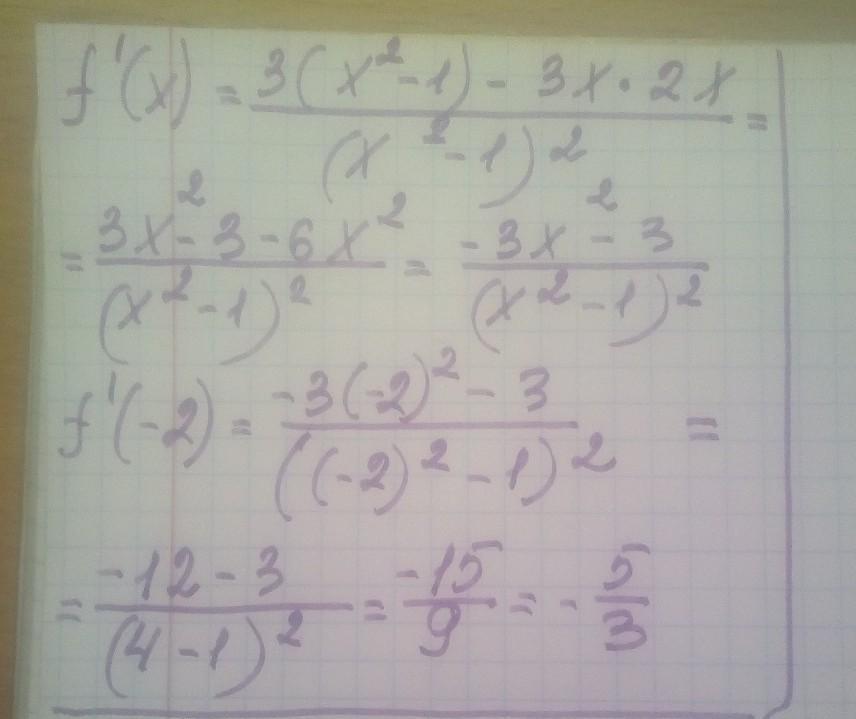 f'(x) = (3(x²-1) - 3x·2x)/(x²-1)² =
= (3x²-3-6x²)/(x²-1)² = (-3x²-3)/(x²-1)²
f'(-2) = (-3(-2)²-3)/((-2)²-1)² =
= (-12-3)/(4-1)² = -15/9 = -5/3